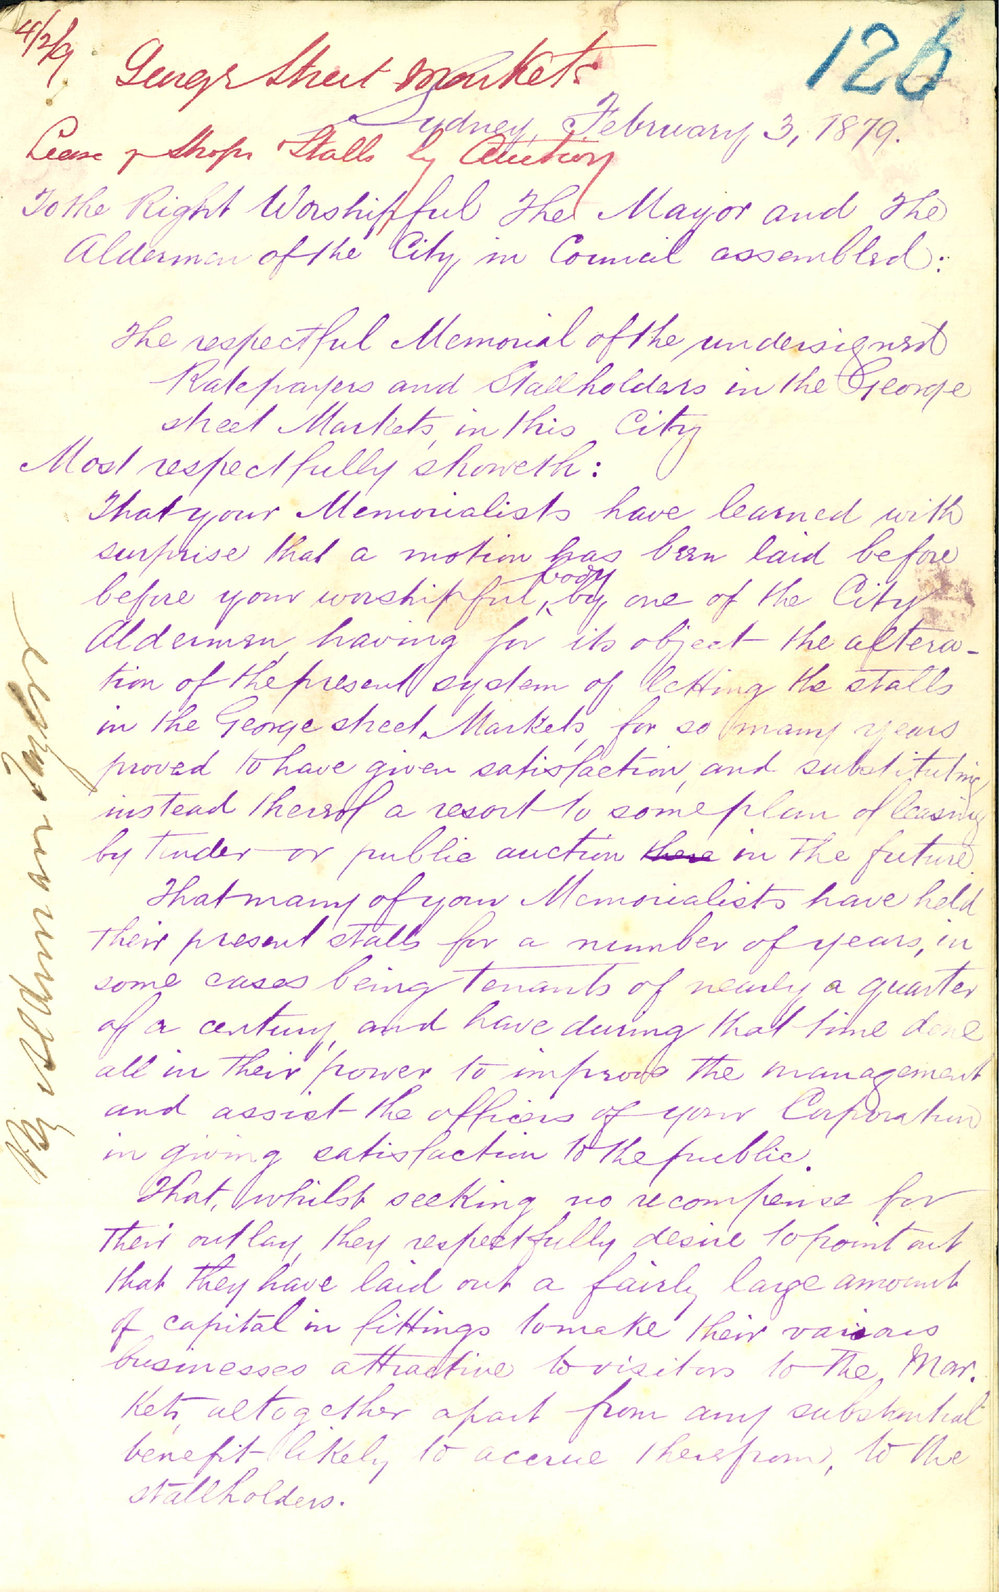 4/2/9
126
George Street Markets
Sydney, February 3, 1879.
Lease of Shops Stalls by Auction
To the Right Worshipful The Mayor and The
Aldermen of the City in Council assembled:
The respectful Memorial of the undersigned
Ratepayers and Stallholders in the George
street Markets, in this City
Most respectfully showeth:
That your Memorialists have learned with
surprise that a motion has been laid before
before your worshipful, body by one of the City
Aldermen, having for its object the altera-
tion of the present system of letting the stalls
in the George street Markets, for so many years
proved to have given satisfaction, and substituting
instead thereof a resort to some plan of leasing
by Tender or public auction there in the future.
That many of your Memorialists have held
their present stalls for a number of years, in
some cases being tenants of nearly a quarter
of a century, and have during that time done
all in their power to improve the management
and assist the officers of your Corporation
in giving satisfaction to the public.
That, whilst seeking no recompense for
their outlay, they respectfully desire to point out
that they have laid out a fairly large amount
of capital in fittings to make their various
businesses attractive to visitors to the Mar-
kets, altogether apart from any substantial
benefit likely to accrue therefrom, to the
stallholders.
By Alderman Taylor